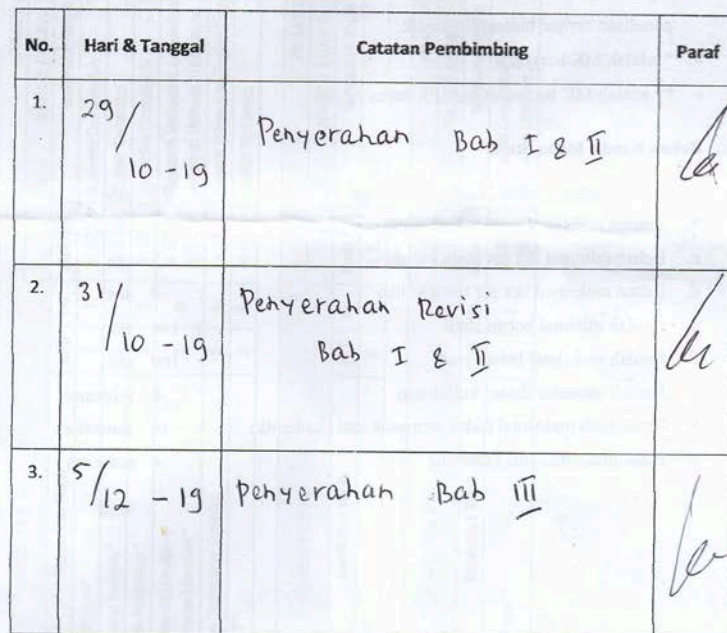 No. Hari & Tanggal Catatan Pembimbing Paraf
1. 29/10-19 Penyerahan Bab I & II
2. 31/10-19 Penyerahan Revisi
Bab I & II
3. 5/12-19 Penyerahan Bab III